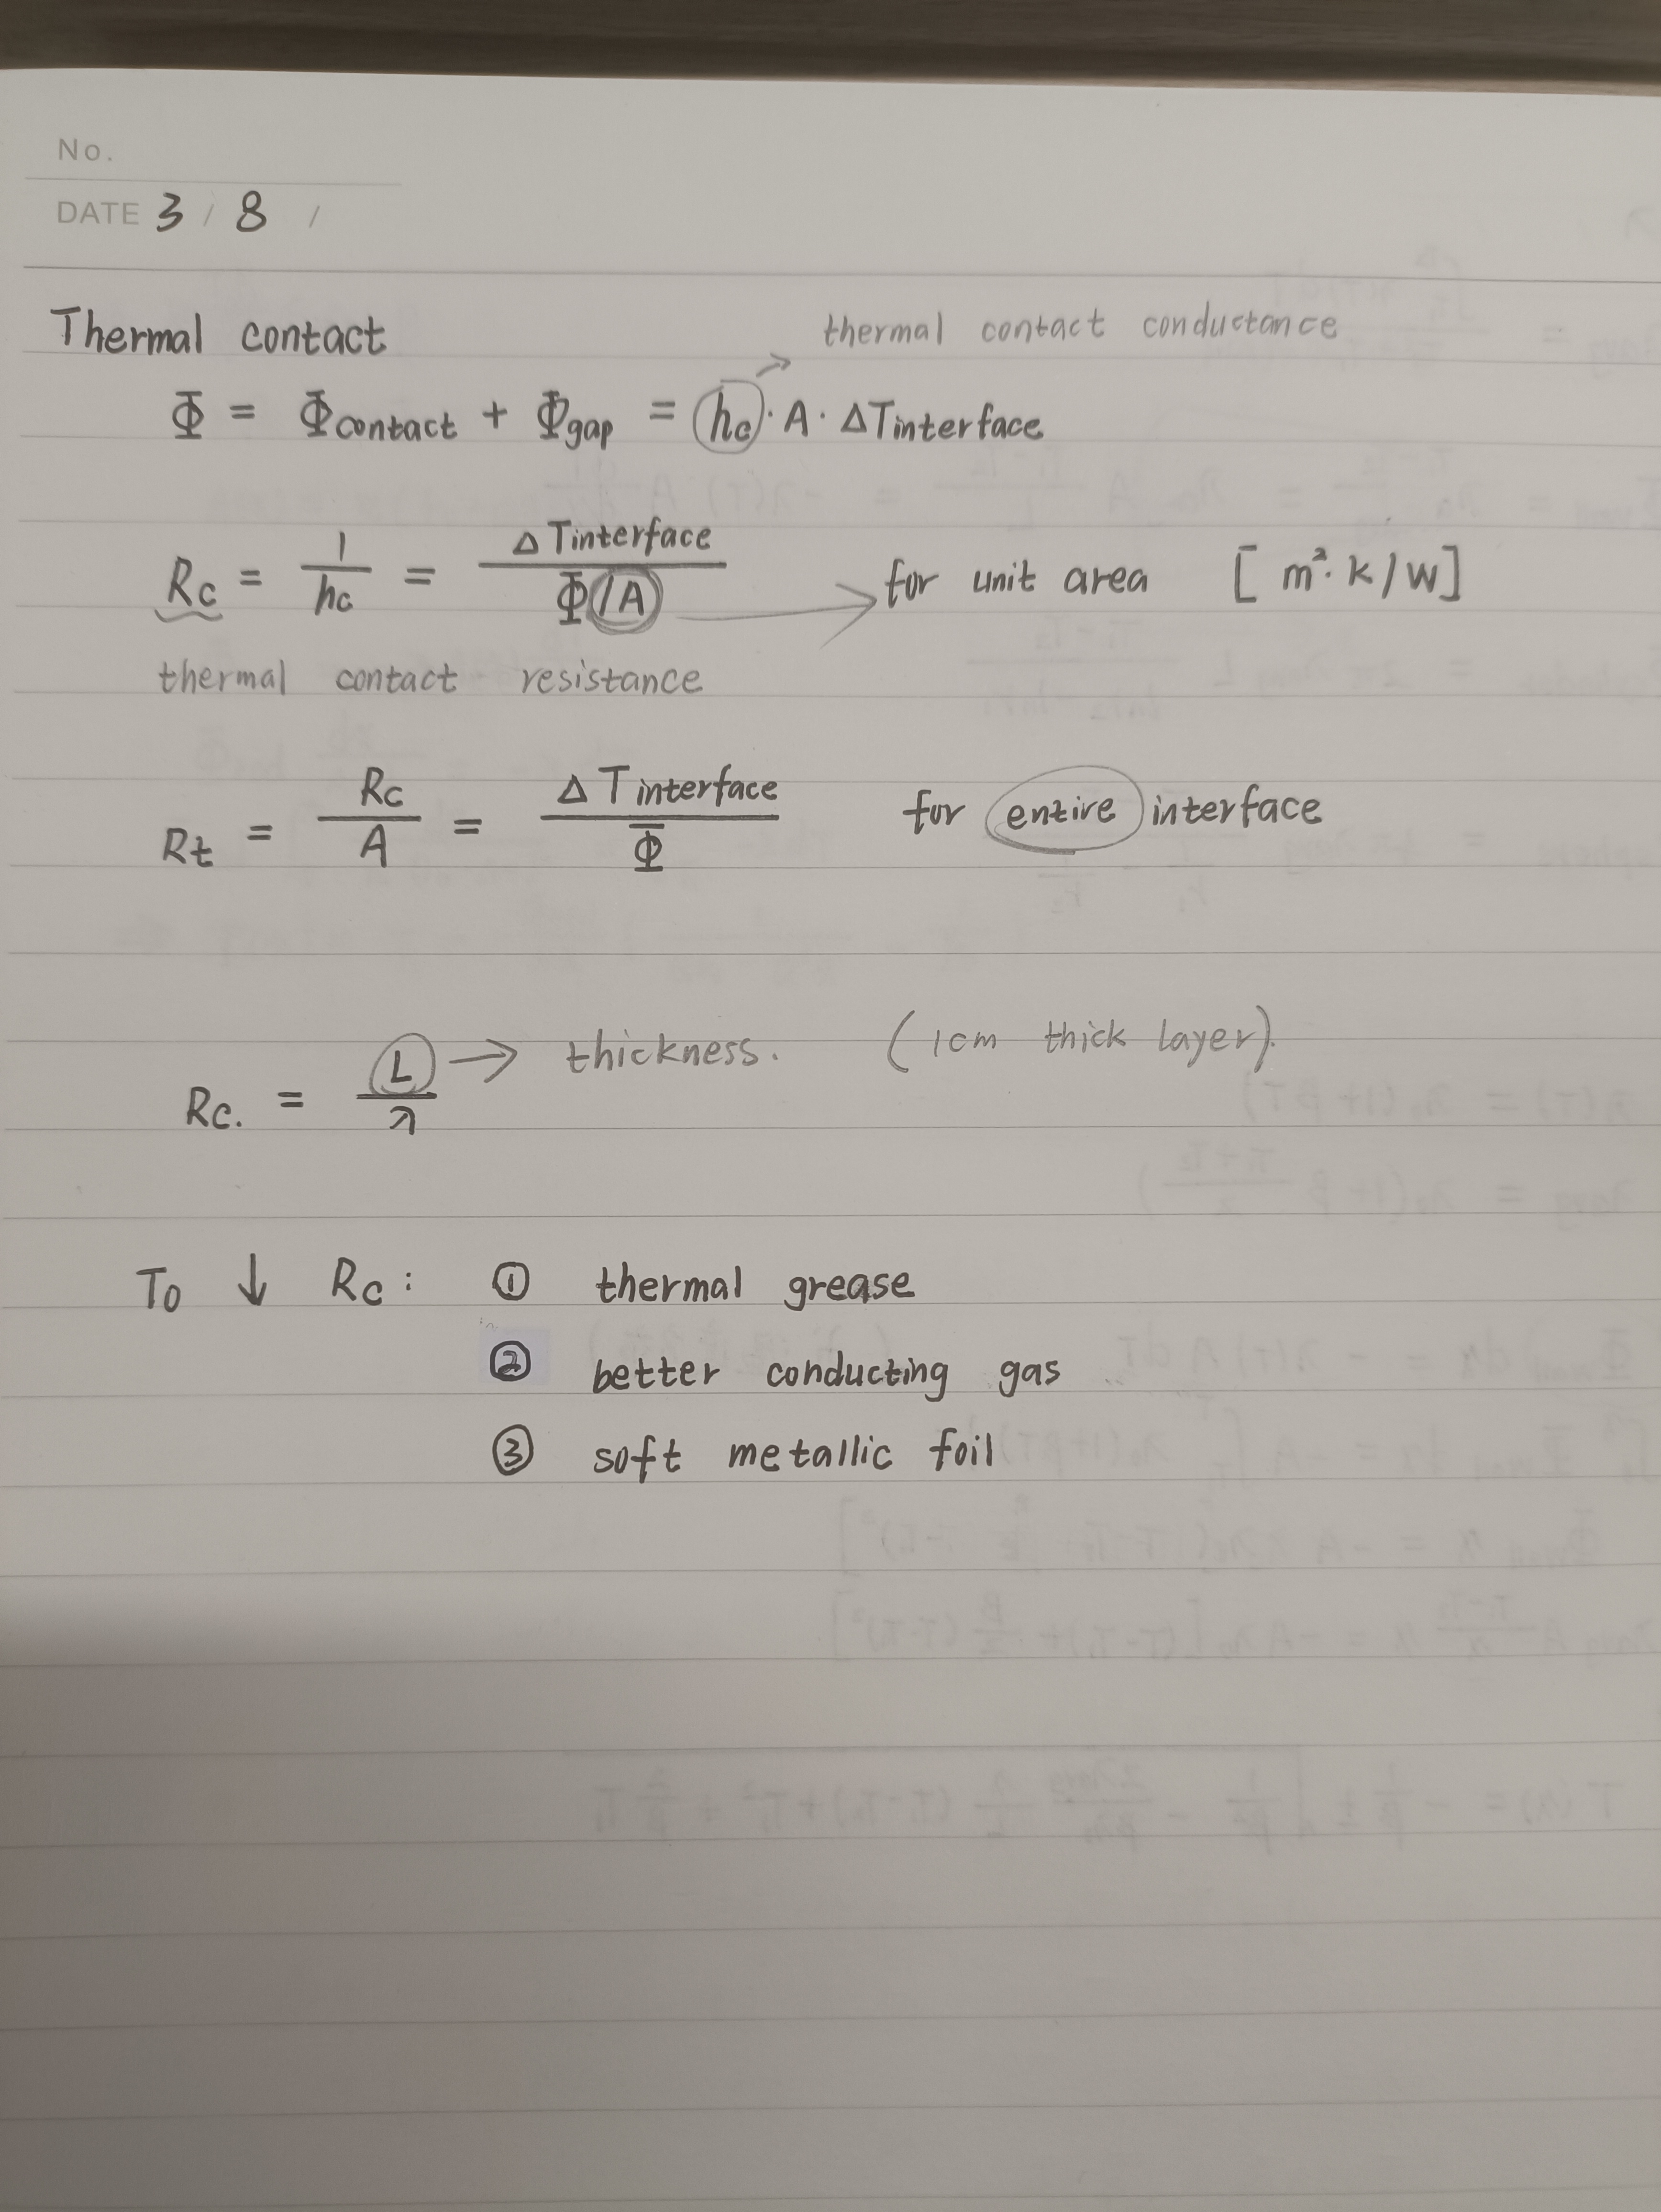 No.
DATE 3 / 8 /
Thermal contact
thermal contact conductance
Φ = Φcontact + Φgap = hc · A · ΔTinterface
Rc = 1/hc = ΔTinterface / Φ(/A) → for unit area [m²·k/W]
thermal contact resistance
Rt = Rc/A = ΔTinterface / Φ for entire interface
Rc. = L/λ → thickness. (1cm thick layer).
To ↓ Rc: ① thermal grease
② better conducting gas
③ soft metallic foil